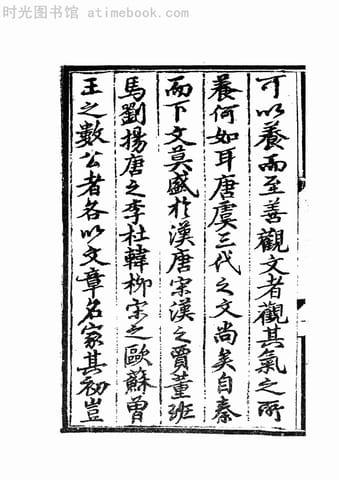 时光图书馆 atimebook.com
可以養而至善觀文者觀其氣之所
養何如耳唐虞三代之文尚矣自秦
而下文莫盛於漢唐宋漢之賈董班
馬劉揚唐之李杜韓柳宋之歐蘇曾
王之數公者各以文章名家其初豈